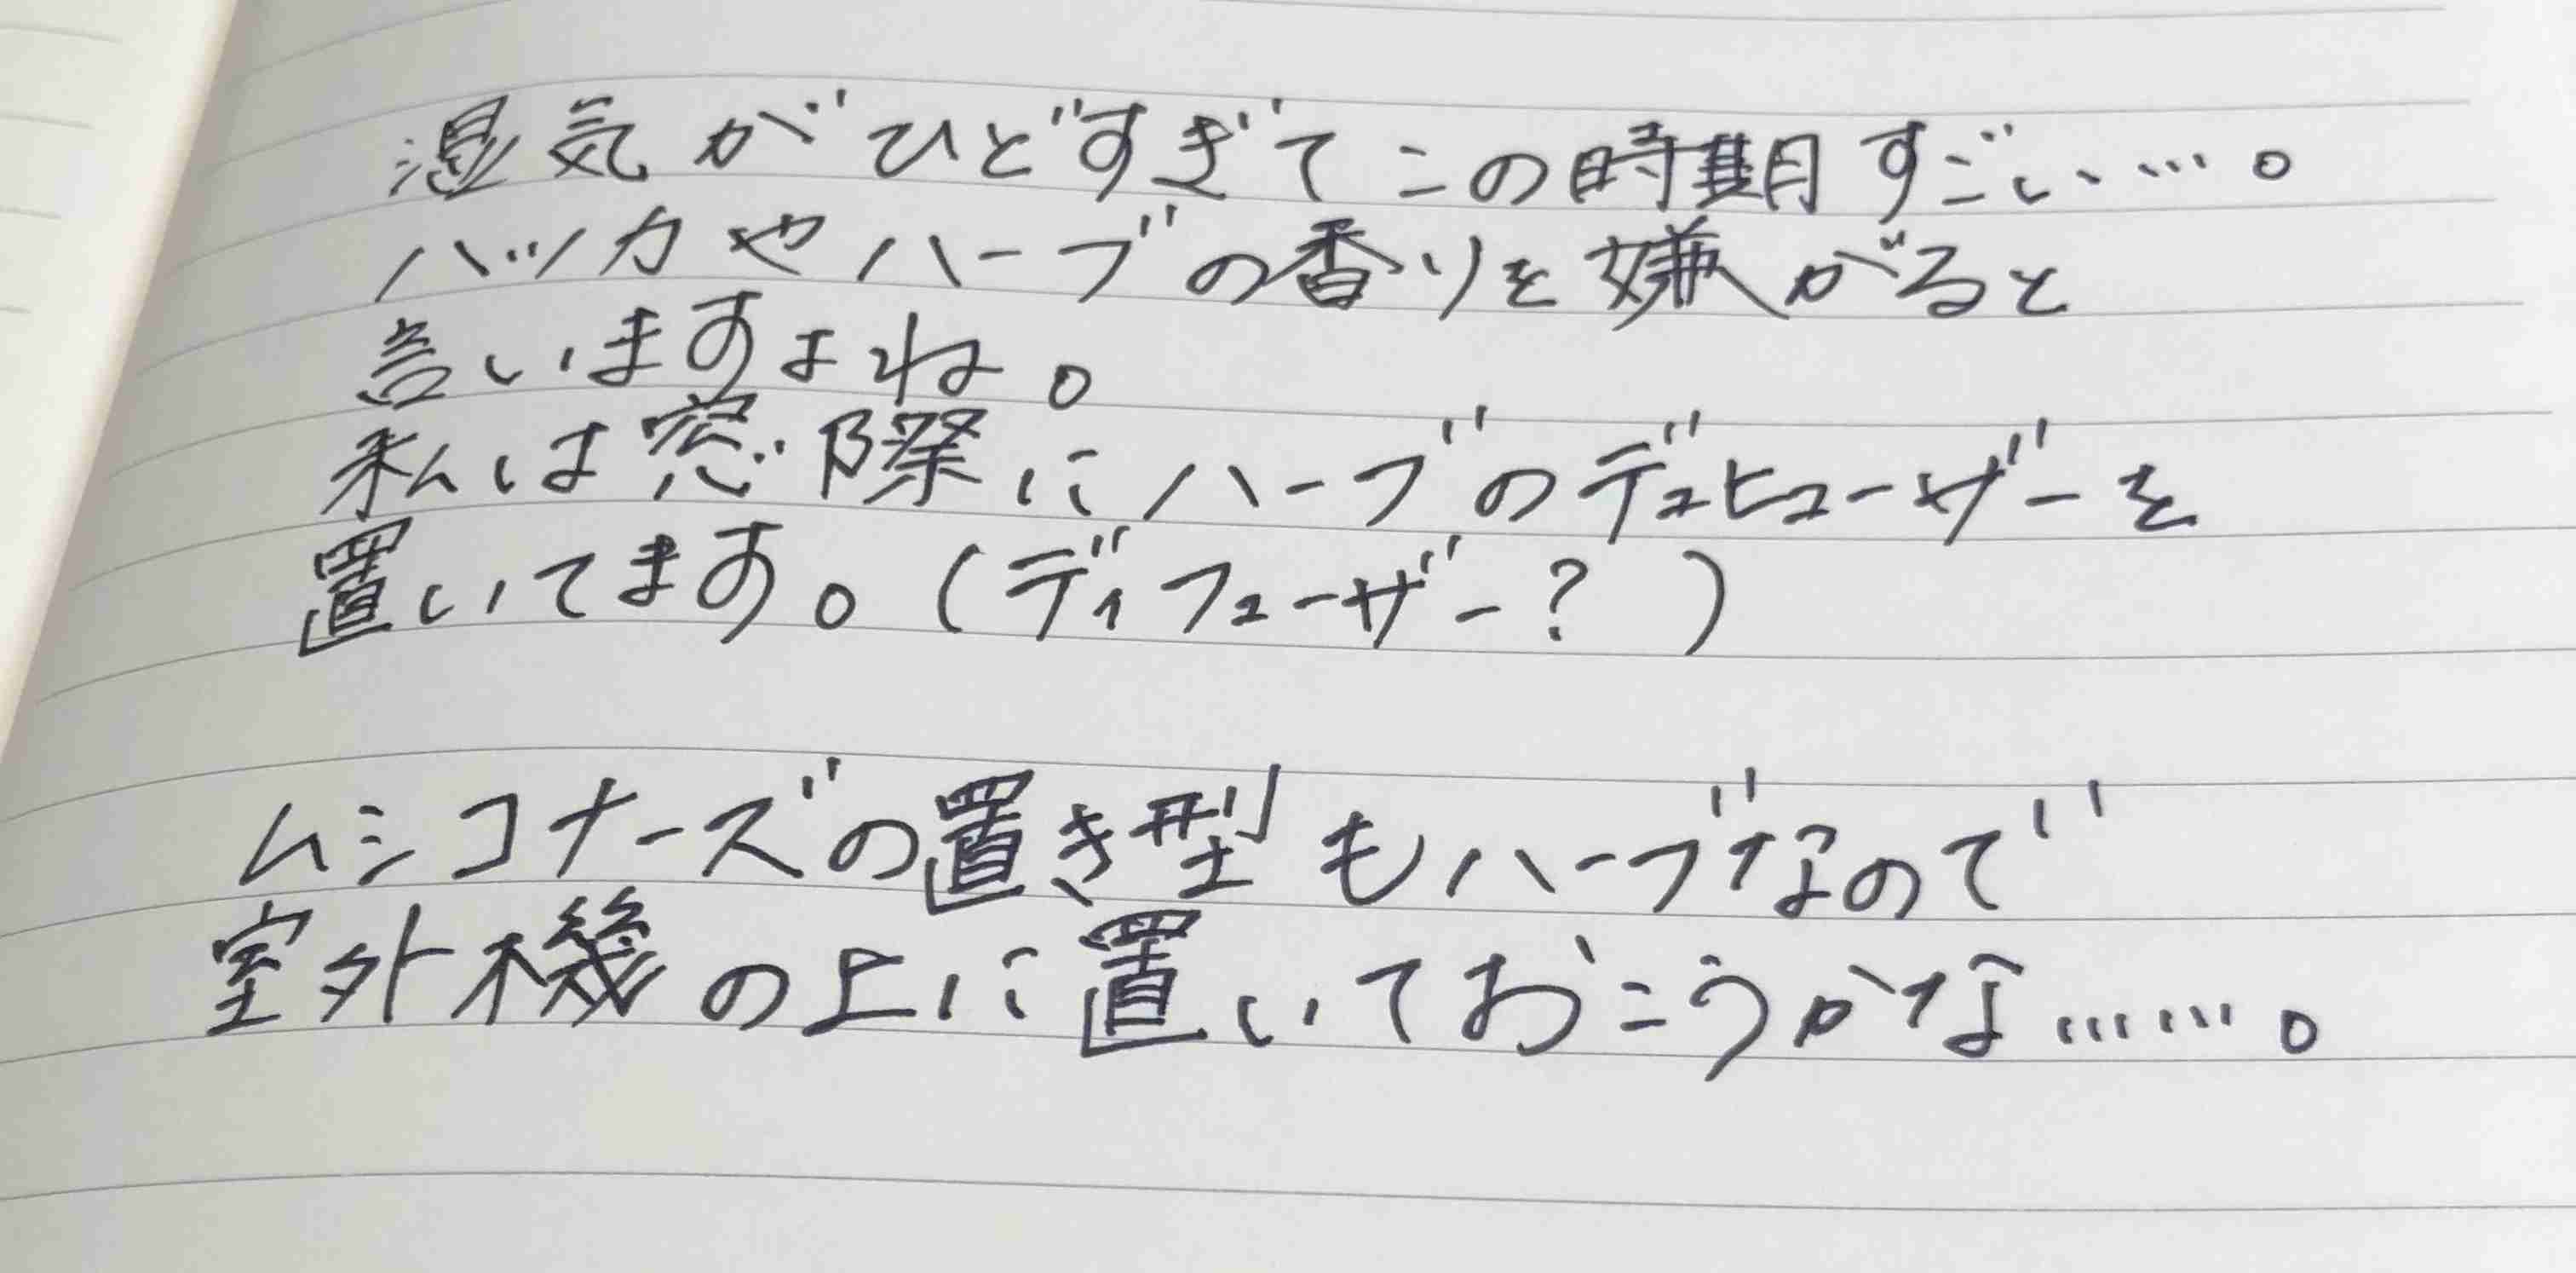 湿気がひどすぎてこの時期すごい…。
ハッカやハーブの香りを嫌がると
言いますよね。
私は窓際にハーブのデュヒューザーを
置いてます。(ディフューザー?)
ムシコナーズの置き型もハーブなので
室外機の上に置いておこうかな……。